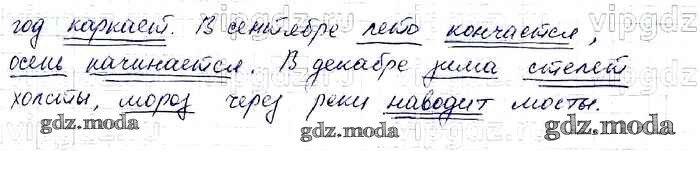 год каркает. В сентябре лето кончается,
осень начинается. В декабре зима стелет
холсты, мороз через реки наводит мосты.
gdz.moda gdz.moda gdz.moda